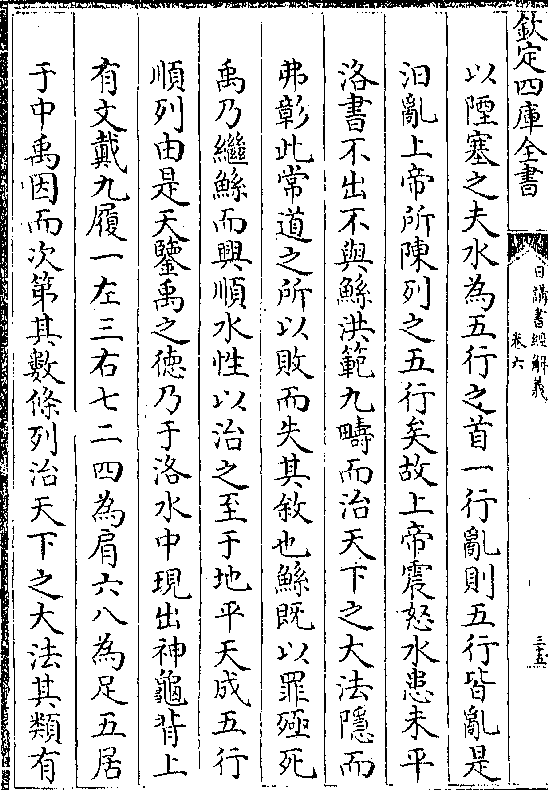 欽定四庫全書
日講書經解義
卷六
三五
以陻塞之夫水為五行之首一行亂則五行皆亂是
汩亂上帝所陳列之五行矣故上帝震怒水患未平
洛書不出不與鯀洪範九疇而治天下之大法隱而
弗彰此常道之所以敗而失其敘也鯀既以罪殛死
禹乃繼鯀而興順水性以治之至于地平天成五行
順列由是天鑒禹之德乃于洛水中現出神龜背上
有文戴九履一左三右七二四為肩六八為足五居
于中禹因而次第其數條列治天下之大法其類有